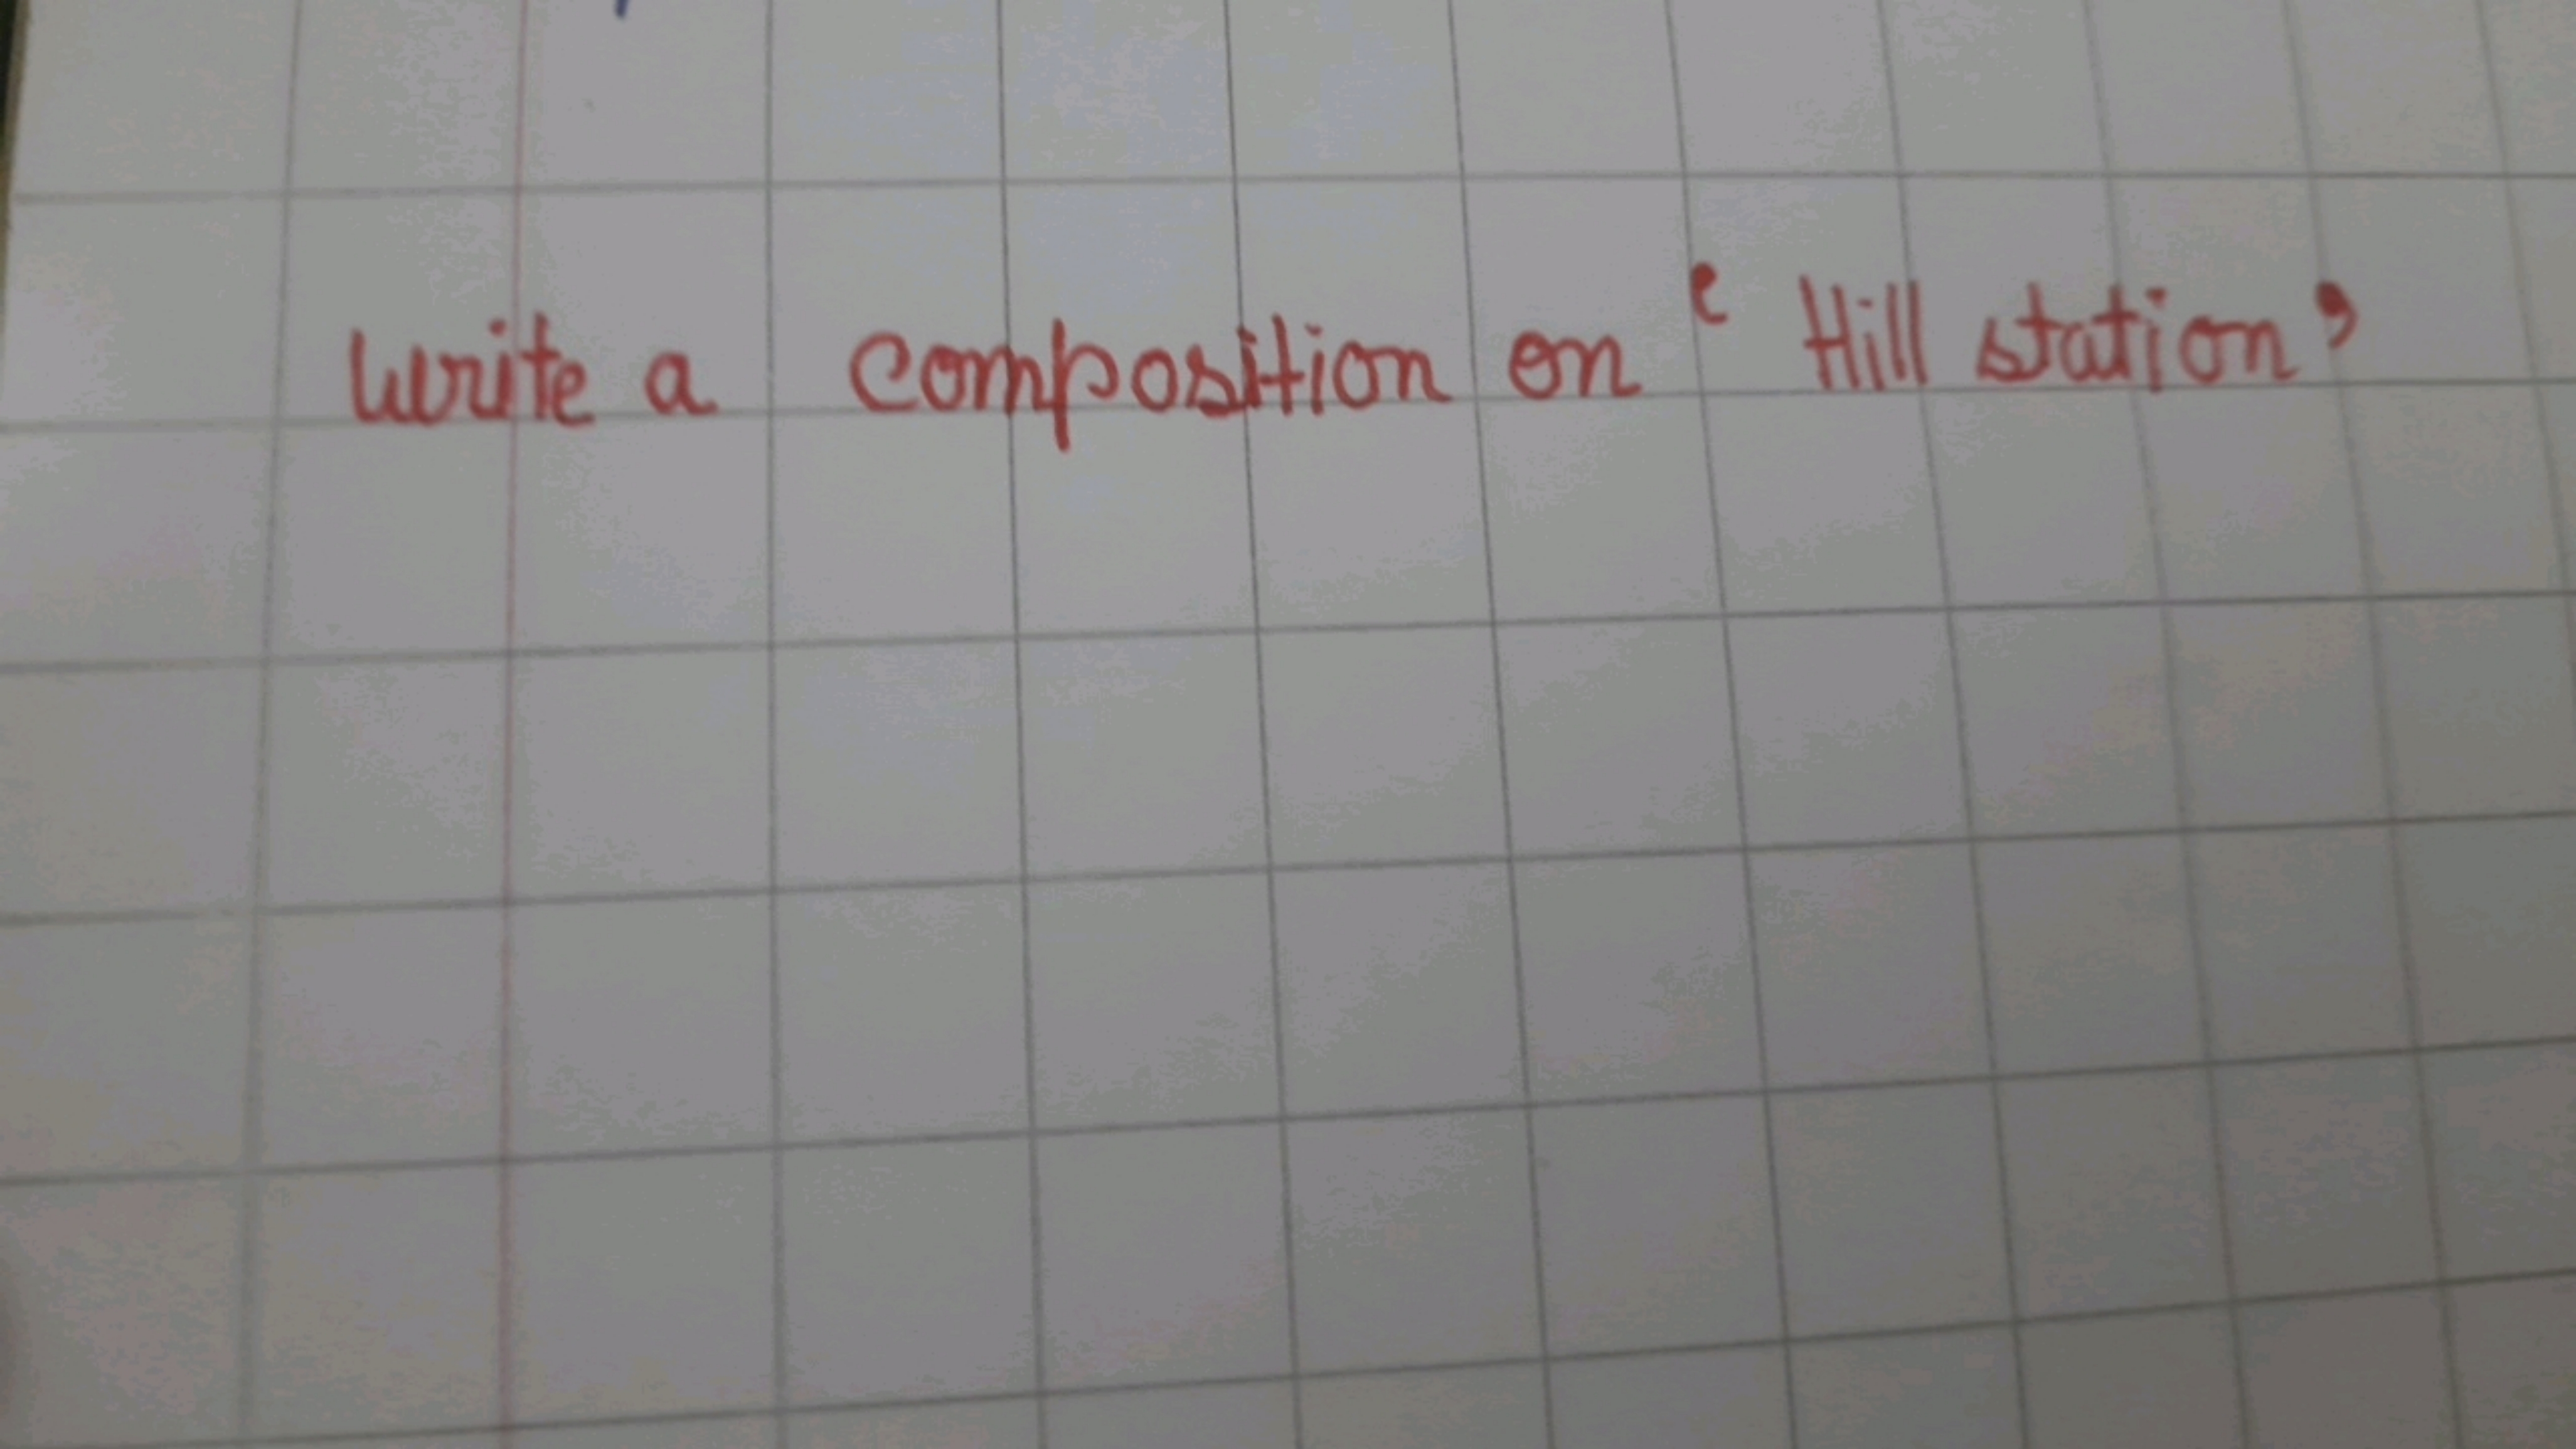 Write a composition on ‘ Hill station’